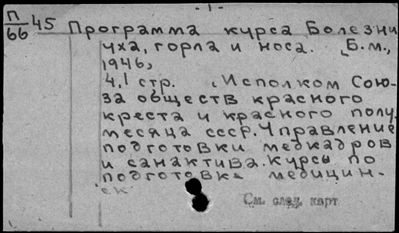 - 1 -
П/66 45 Программа курса Болезни
уха, горла и носа. [Б.м.,
1946]
4,1 стр. (Исполком Сою-
за обществ красного
креста и красного полу-
месяца СССР. Управление
подготовки медкадров
и санактива. Курсы по
подготовке медицин-
ск
См. след. карт